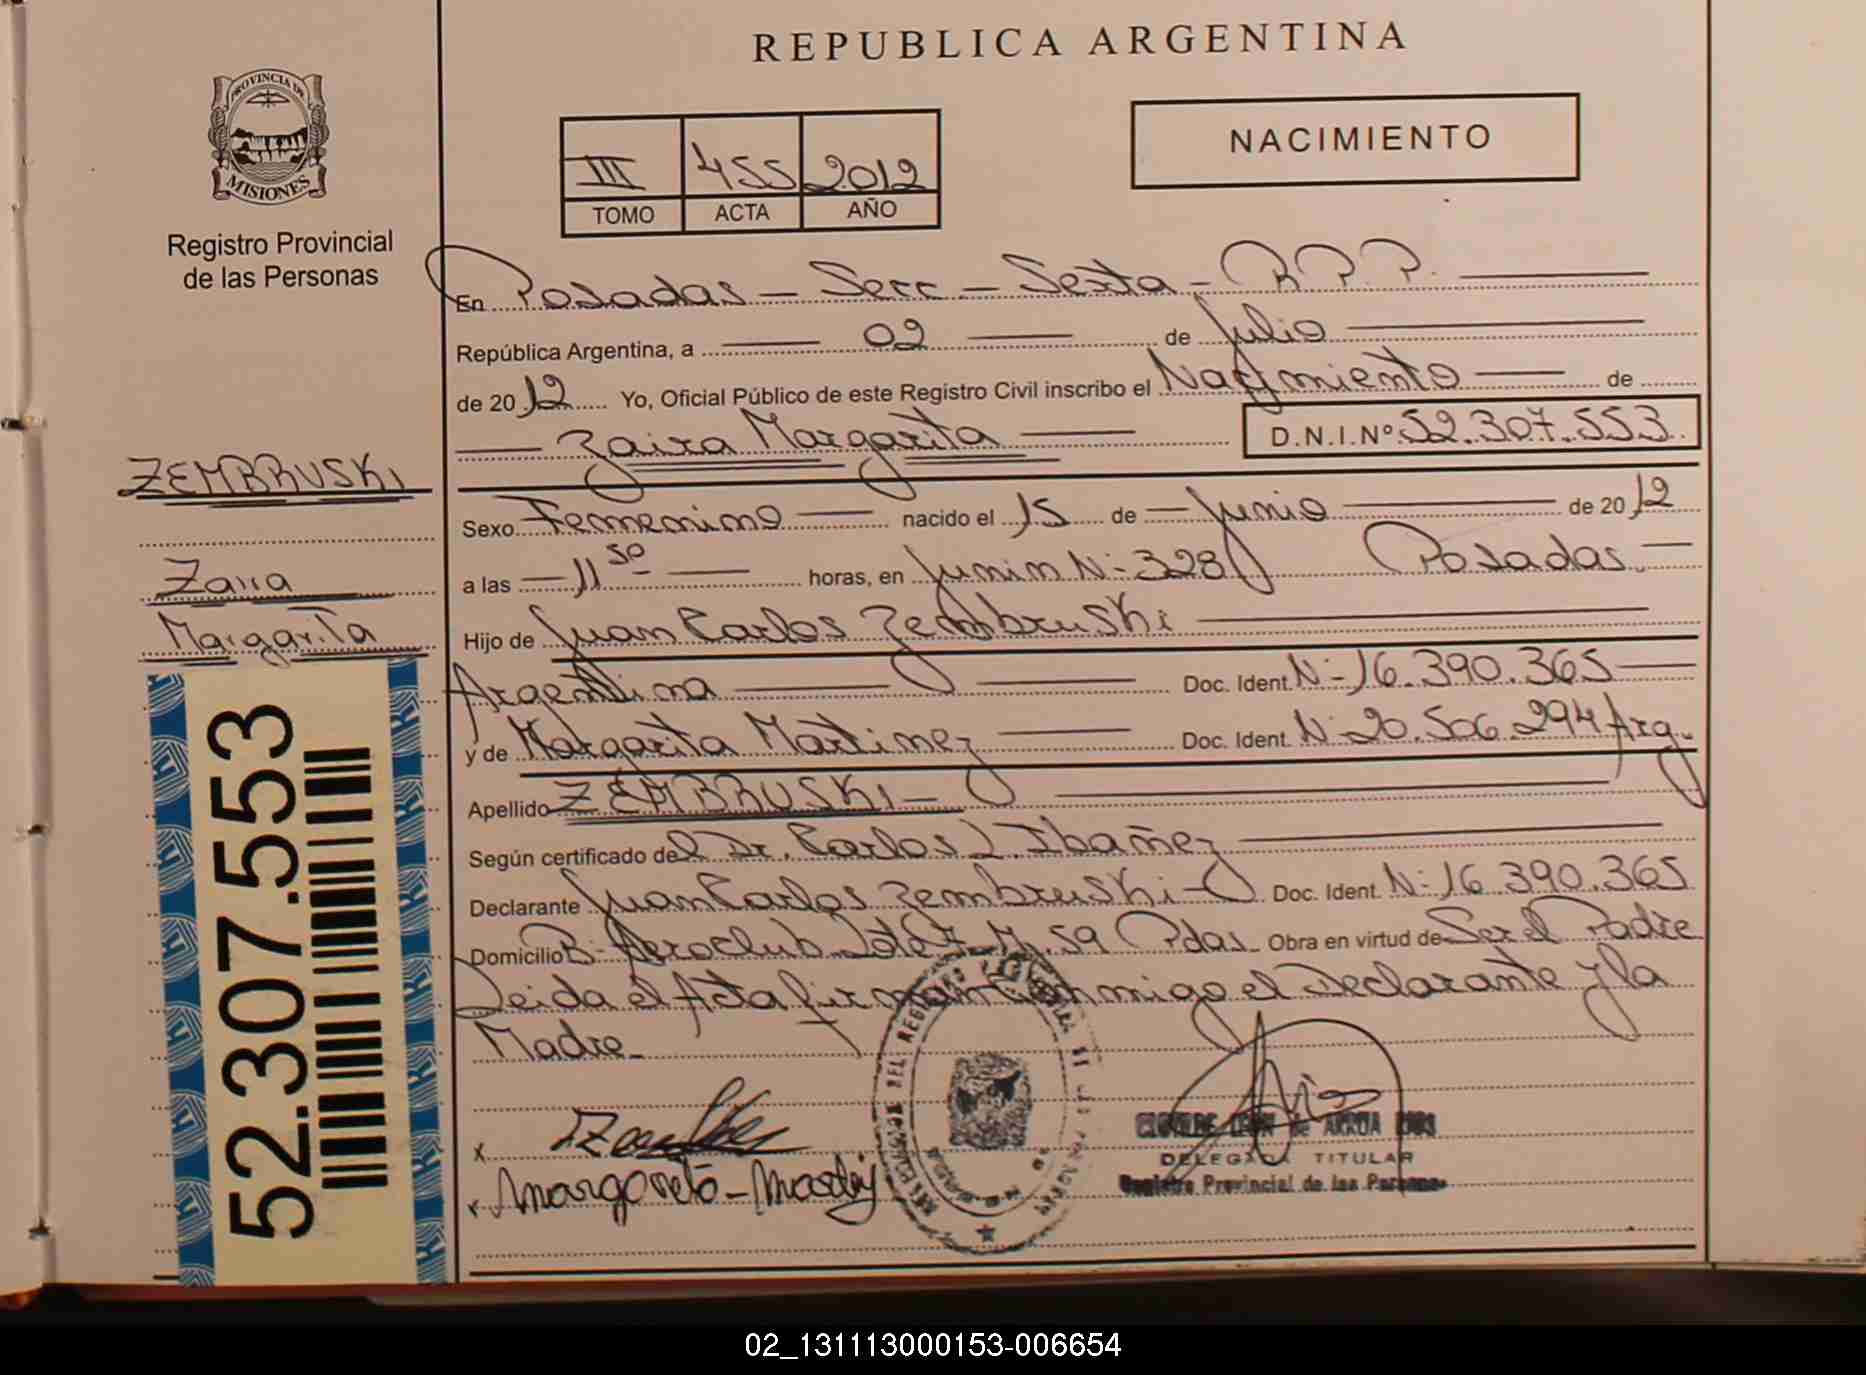 REPUBLICA ARGENTINA
PROVINCIA DE
MISIONES
Registro Provincial
de las Personas
III 455 2012
TOMO ACTA AÑO
NACIMIENTO
En Posadas - Secc - Sexta - R.P.P.
República Argentina, a 02 de Julio
de 2012 Yo, Oficial Público de este Registro Civil inscribo el Nacimiento de
Zaira Margarita D.N.I.Nº 52.307.553
ZEMBRUSKI
Zaira
Margarita
Sexo Femenino nacido el 15 de Junio de 2012
a las 11 50 horas, en Junin Nº 328 Posadas.
Hijo de Juan Carlos Zembruski
Argentina Doc. Ident. Nº 16.390.365
y de Margarita Martinez Doc. Ident. Nº 20.506.294 Arg.
Apellido ZEMBRUSKI
Según certificado del Dr. Carlos L. Ibañez
Declarante Juan Carlos Zembruski - Doc. Ident. Nº 16.390.365
Domicilio B. Aeroclub Lote 7 M. 59 Pdas. Obra en virtud de Ser el Padre
Leida el Acta firman Conmigo el Declarante y la
Madre
52.307.553
x
x Margarita -
DELEGADA TITULAR
Registro Provincial de las Personas
02_131113000153-006654